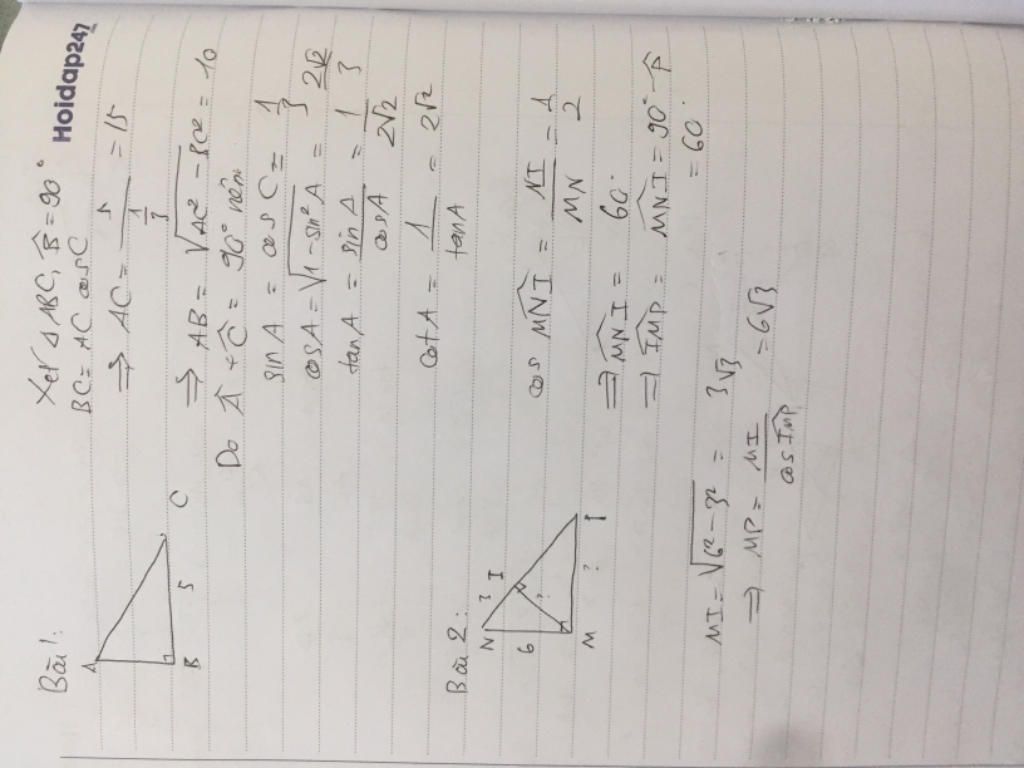 Hoidap247
Bài 1:
A
B
5
C
Xét △ ABC, B̂ = 90°
BC = AC cosC
⇒ AC = 5 / (1/3) = 15
⇒ AB = √(AC² - BC²) = 10√2
Do Â + Ĉ = 90° nên
sin A = cos C = 1/3
cosA = √(1 - sin²A) = 2√2/3
tanA = sin A / cosA = 1/(2√2)
cot A = 1/tanA = 2√2
Bài 2:
N
3
I
6
?
M
?
P
cos MNI = NI/MN = 1/2
⇒ MNI = 60°
⇒ IMP = MNI = 90° - P̂
= 60°
MI = √(6² - 3²) = 3√3
⇒ MP = MI / cos IMP = 6√3